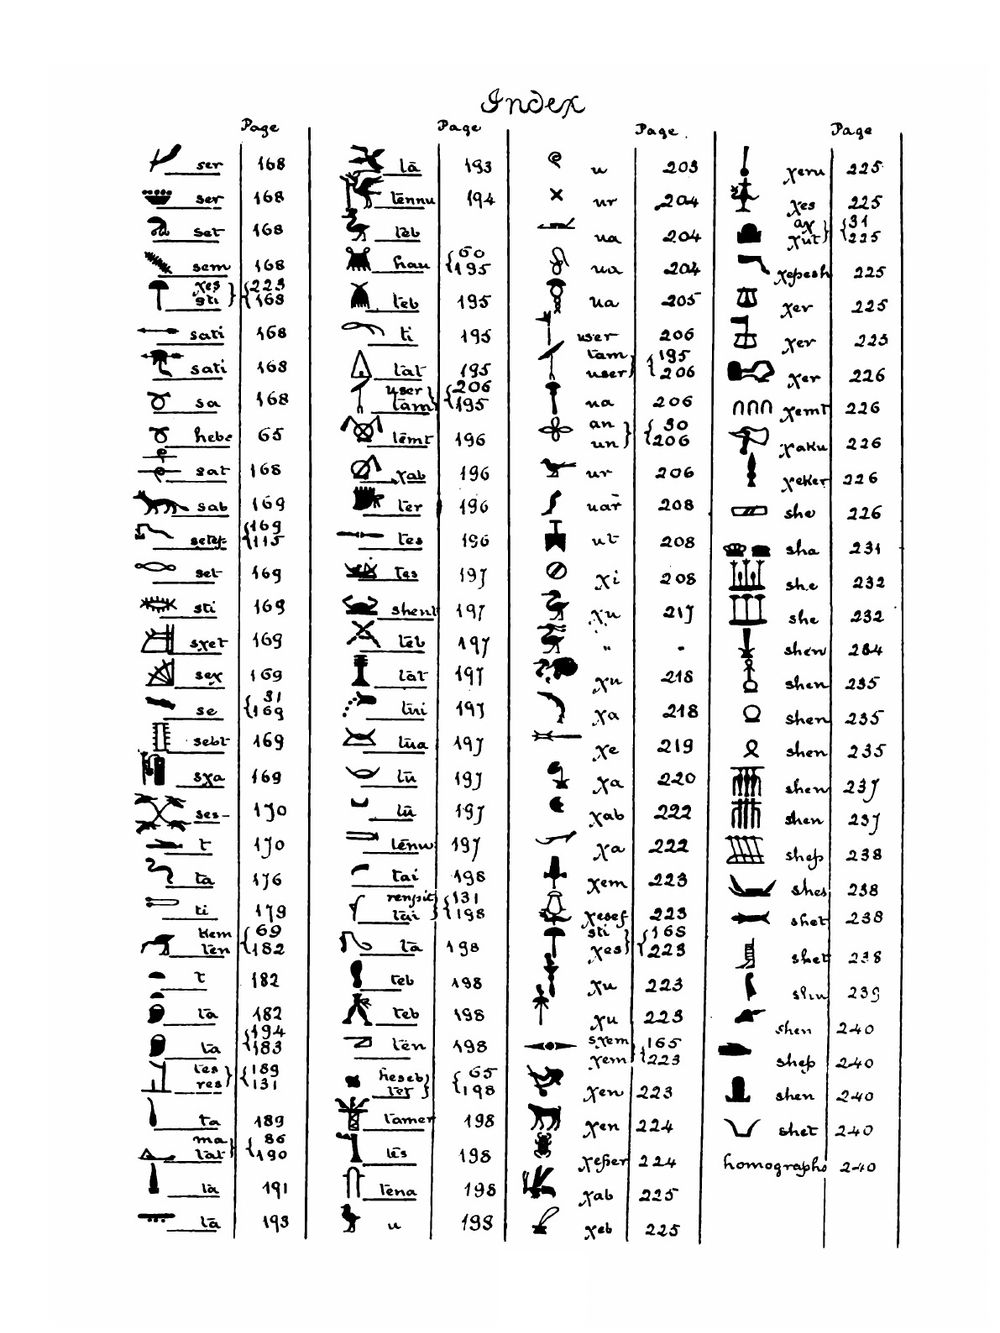 Index
Page
ser 168
ser 168
set 168
sem 168
xes 223
sti 168
sati 168
sati 168
sa 168
hebe 65
sat 168
sab 169
setep 169
115
set 169
sti 169
sxet 169
sex 169
se 31
169
sebt 169
sxa 169
ses- 170
t 170
ta 176
ti 179
kem 69
ten 182
t 182
ta 182
ta 194
183
tes 189
res 131
ta 189
ma 86
tat 190
ta 191
ta 193
Page
tā 193
tennu 194
teb
hau 60
195
teb 195
ti 195
tat 195
user 206
tam 195
temt 196
xab 196
ter 196
tes 196
tes 197
shent 197
teb 197
tat 197
tui 197
tua 197
tu 197
tu 197
tennu 197
tai 198
renpit 131
tai 198
ta 198
teb 198
teb 198
ten 198
heseb 65
tet 198
tamer 198
tes 198
tena 198
u 198
Page.
u 203
ur 204
ua 204
ua 204
ua 205
user 206
tam 195
user 206
ua 206
an 30
un 206
ur 206
uār 208
ut 208
xi 208
xu 217
" "
xu 218
xa 218
xe 219
xa 220
xab 222
xa 222
xem 223
xesef 223
sti 168
xes 223
xu 223
xu 223
sxem 165
xem 223
xen 223
xen 224
xeper 224
xab 225
xeb 225
Page
xeru 225
xes 225
ax 31
xut 225
xepesh 225
xer 225
xer 225
xer 226
xemt 226
xaku 226
xeker 226
she 226
sha 231
she 232
she 232
shen 234
shen 235
shen 235
shen 235
shen 237
shen 237
shep 238
shes 238
shet 238
shet 238
shu 239
shen 240
shep 240
shen 240
shet 240
homographs 240